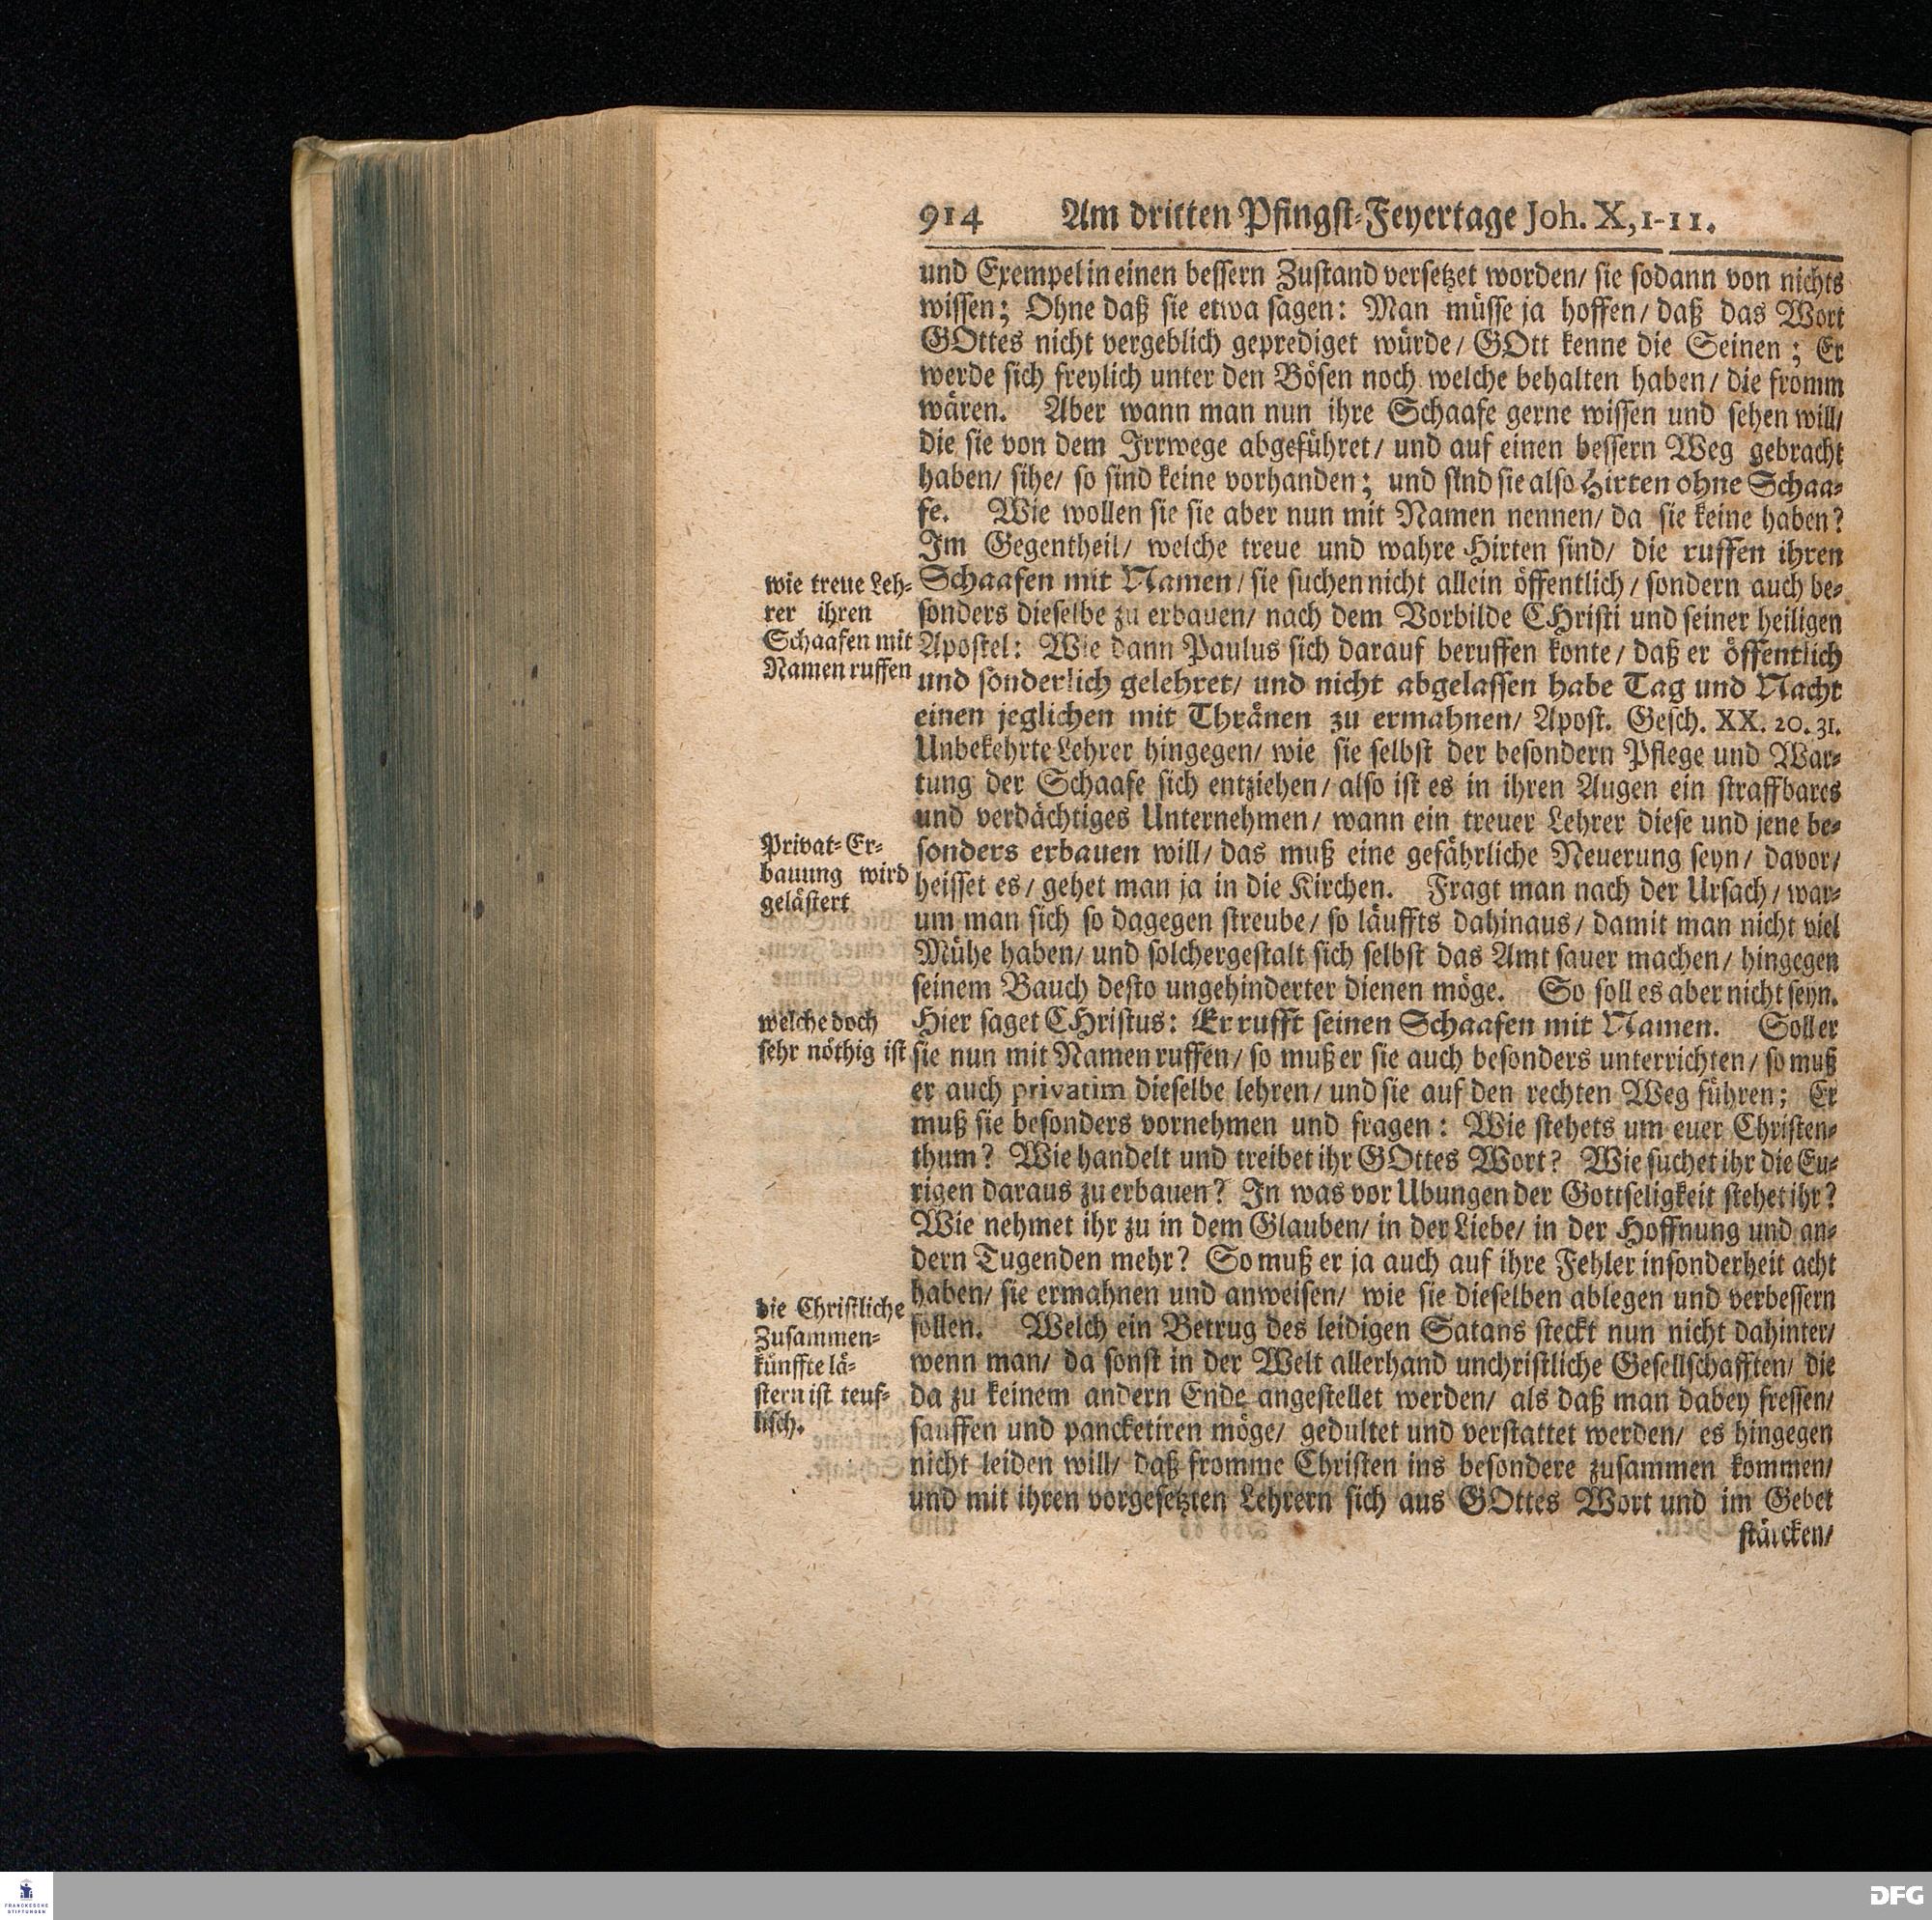 914 Am dritten Pfingst-Feyertage Joh. X, 1-11.
und Exempel in einen bessern Zustand versetzet worden/ sie sodann von nichts
wissen; Ohne daß sie etwa sagen: Man müsse ja hoffen/ daß das Wort
GOttes nicht vergeblich geprediget würde/ GOtt kenne die Seinen; Er
werde sich freylich unter den Bösen noch welche behalten haben/ die fromm
wären. Aber wann man nun ihre Schaafe gerne wissen und sehen will/
die sie von dem Irrwege abgeführet/ und auf einen bessern Weg gebracht
haben/ sihe/ so sind keine vorhanden; und sind sie also Hirten ohne Schaa-
fe. Wie wollen sie sie aber nun mit Namen nennen/ da sie keine haben?
Im Gegentheil/ welche treue und wahre Hirten sind/ die ruffen ihren
Schaafen mit Namen/ sie suchen nicht allein öffentlich/ sondern auch be-
sonders dieselbe zu erbauen/ nach dem Vorbilde CHristi und seiner heiligen
Apostel: Wie dann Paulus sich darauf beruffen konte/ daß er öffentlich
und sonderlich gelehret/ und nicht abgelassen habe Tag und Nacht
einen jeglichen mit Thränen zu ermahnen/ Apost. Gesch. XX. 20. 31.
Unbekehrte Lehrer hingegen/ wie sie selbst der besondern Pflege und War-
tung der Schaafe sich entziehen/ also ist es in ihren Augen ein straffbares
und verdächtiges Unternehmen/ wann ein treuer Lehrer diese und jene be-
sonders erbauen will/ das muß eine gefährliche Neuerung seyn/ davor/
heisset es/ gehet man ja in die Kirchen. Fragt man nach der Ursach/ war-
um man sich so dagegen streube/ so läuffts dahinaus/ damit man nicht viel
Mühe haben/ und solchergestalt sich selbst das Amt sauer machen/ hingegen
seinem Bauch desto ungehinderter dienen möge. So soll es aber nicht seyn.
Hier saget CHristus: Er rufft seinen Schaafen mit Namen. Soll er
sie nun mit Namen ruffen/ so muß er sie auch besonders unterrichten/ so muß
er auch privatim dieselbe lehren/ und sie auf den rechten Weg führen; Er
muß sie besonders vornehmen und fragen: Wie stehets um euer Christen-
thum? Wie handelt und treibet ihr GOttes Wort? Wie suchet ihr die Eu-
rigen daraus zu erbauen? In was vor Ubungen der Gottseligkeit stehet ihr?
Wie nehmet ihr zu in dem Glauben/ in der Liebe/ in der Hoffnung und an-
dern Tugenden mehr? So muß er ja auch auf ihre Fehler insonderheit acht
haben/ sie ermahnen und anweisen/ wie sie dieselben ablegen und verbessern
sollen. Welch ein Betrug des leidigen Satans steckt nun nicht dahinter/
wenn man/ da sonst in der Welt allerhand unchristliche Gesellschafften/ die
da zu keinem andern Ende angestellet werden/ als daß man dabey fressen/
sauffen und pancketiren möge/ gedultet und verstattet werden/ es hingegen
nicht leiden will/ daß fromme Christen ins besondere zusammen kommen/
und mit ihren vorgesetzten Lehrern sich aus GOttes Wort und im Gebet
stärcken/
wie treue Leh-
rer ihren
Schaafen mit
Namen ruffen
Privat-Er-
bauung wird
gelästert
welche doch
sehr nöthig ist
die Christliche
Zusammen-
künffte lä-
stern ist teuf-
lisch.
FRANCKESCHE
STIFTUNGEN
DFG